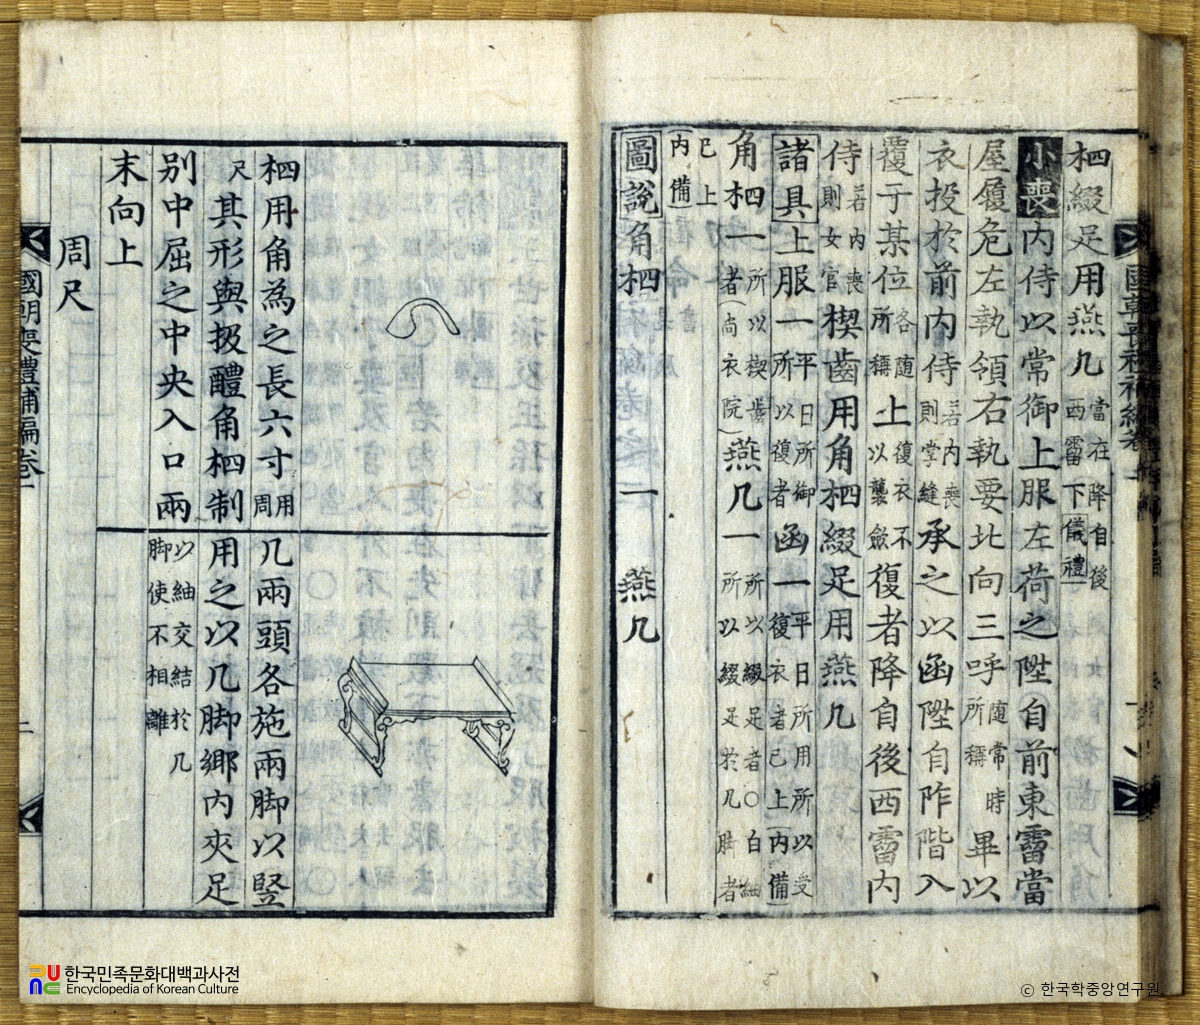 柶綴足用燕几當在降自後西霤下儀禮
小喪內侍以常御上服左荷之陞自前東霤當
屋履危左執領右執要北向三呼隨常時所稱畢以
衣投於前內侍若內喪則掌縫承之以函陞自阼階入
覆于某位各隨所稱上復衣不以襲斂復者降自後西霤內
侍若內喪則女官楔齒用角柶綴足用燕几
諸具上服一平日所御所以復者函一平日所用所以受復衣者已上內備
角柶一所以楔齒者尚衣院燕几一所以綴足者○白紬所以綴足於几脚者
已上內備
圖說角柶一燕几
柶用角為之長六寸用周
尺其形與扱醴角柶制
別中屈之中央入口兩
末向上
周尺
几兩頭各施兩脚以竪
用之以几脚鄉內夾足
以紬交結於几
脚使不相離
國朝喪禮補編卷一
二
한국민족문화대백과사전
Encyclopedia of Korean Culture
ⓒ 한국학중앙연구원